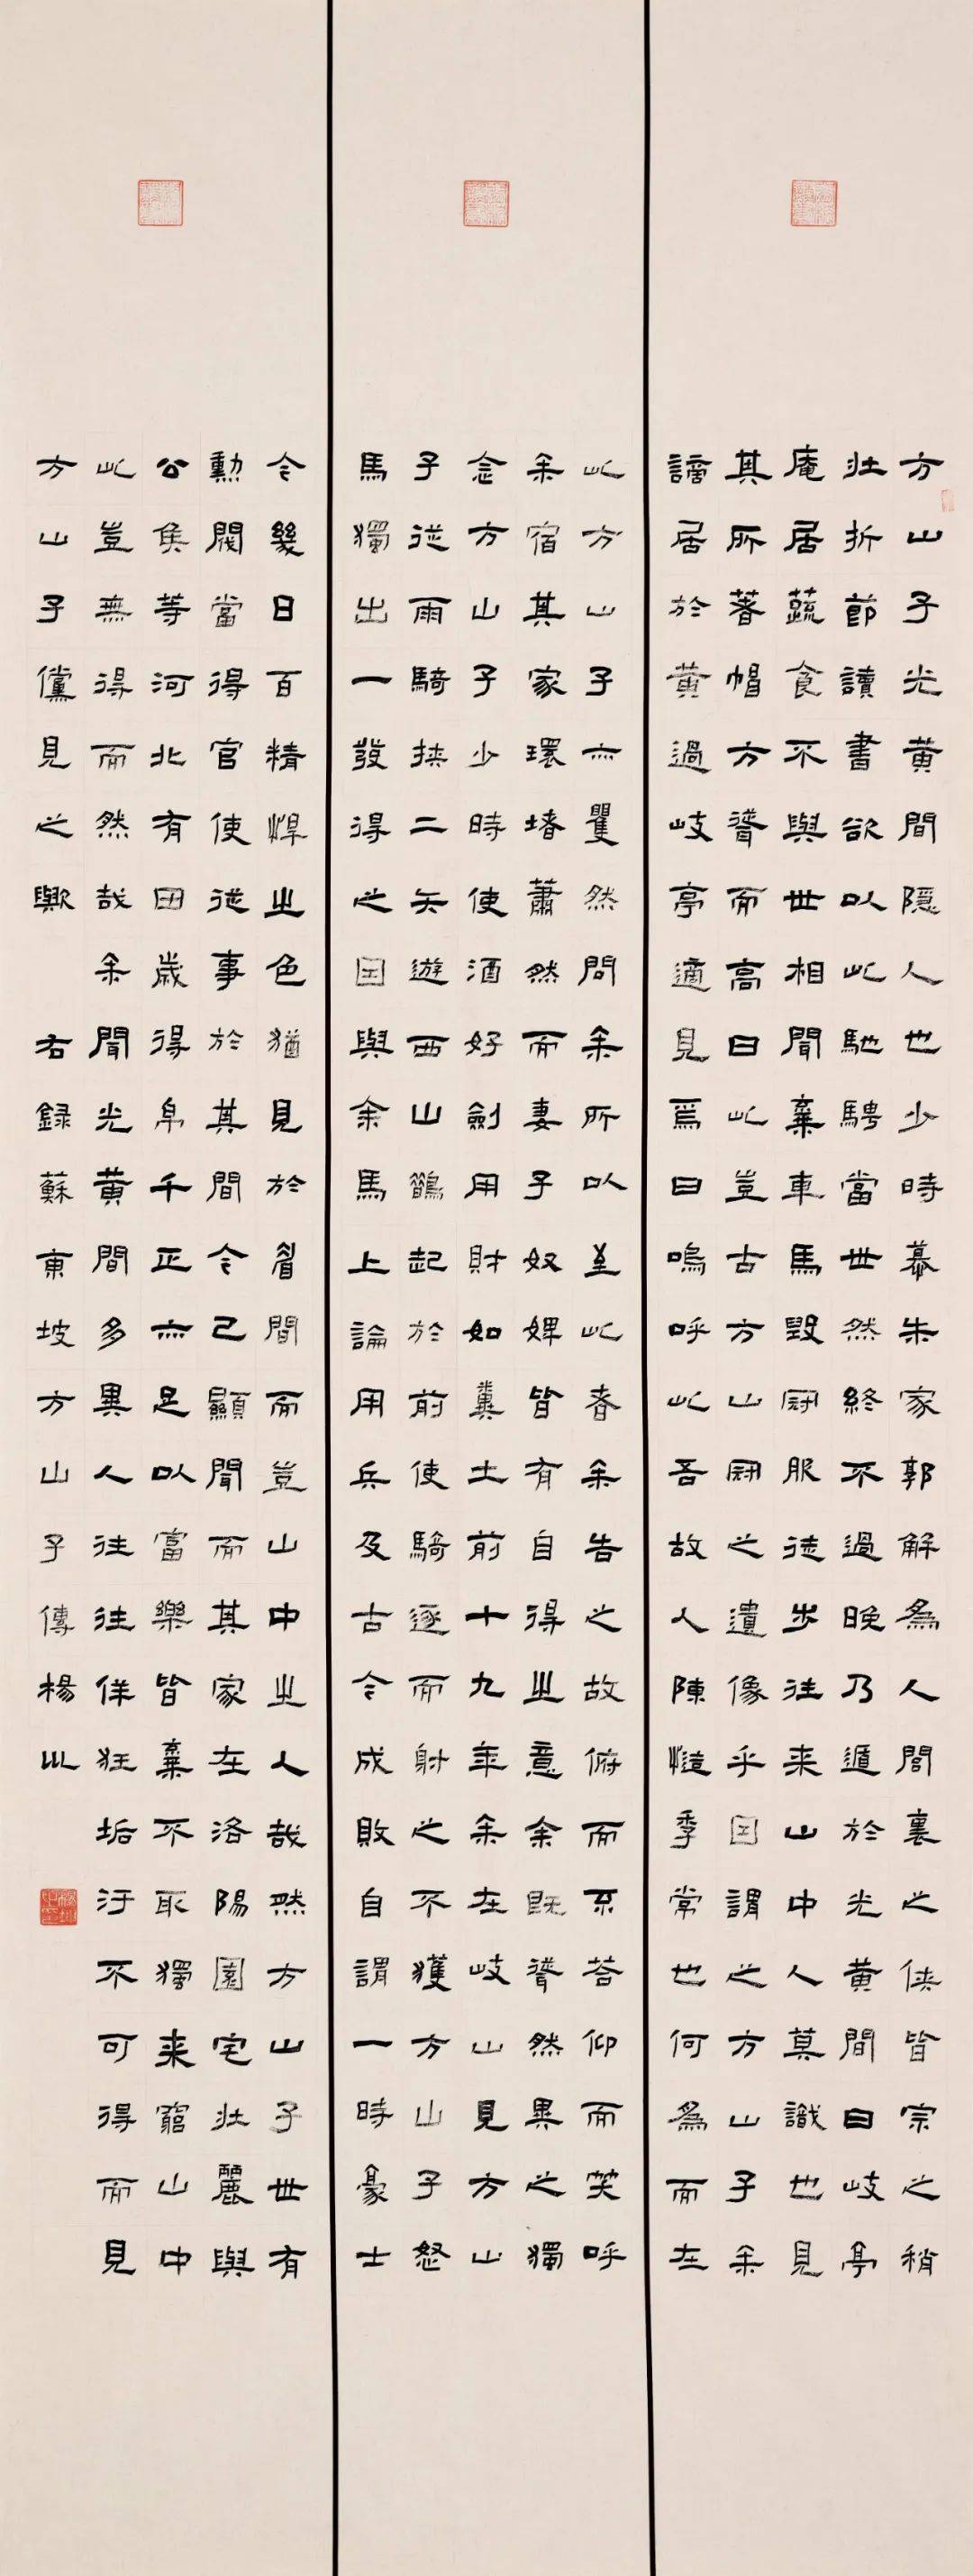 方山子光黄間隱人也少時慕朱家郭解為人閭裏之俠皆宗之稍
壯折節讀書欲以此馳騁當世然終不過晚乃遁於光黄間曰岐亭
庵居蔬食不與世相聞棄車馬毀冠服徒步往来山中人莫識也見
其所著帽方聳而高曰此豈古方山冠之遺像乎因謂之方山子余
謫居於黄過岐亭適見焉曰嗚呼此吾故人陳慥季常也何為而在
此方山子亦矍然問余所以至此者余告之故俯而不答仰而笑呼
余宿其家環堵蕭然而妻子奴婢皆有自得之意余既聳然異之獨
念方山子少時使酒好劍用財如糞土前十九年余在岐山見方山
子從兩騎挾二矢遊西山鵲起於前使騎逐而射之不獲方山子怒
馬獨出一發得之因與余馬上論用兵及古今成敗自謂一時豪士
今幾日百精悍之色猶見於眉間而豈山中之人哉然方山子世有
勳閥當得官使從事於其間今已顯聞而其家在洛陽園宅壯麗與
公侯等河北有田歲得帛千匹亦足以富樂皆棄不取獨来窮山中
此豈無得而然哉余聞光黄間多異人往往佯狂垢汙不可得而見
方山子儻見之歟 右録蘇東坡方山子傳楊